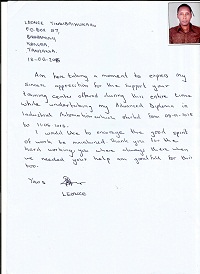 LEONCE
P.O. BOX 57,
TANZANIA.
Am here taking a moment to express my
sincere appreciation for the support your
training center offered during this entire time
while undertaking my Advanced Diploma in
Industrial Automation which started from
to
I would like to encourage the good spirit
of work be maintained. thank you for the
hard working, you where always there when
we needed your help am grateful for this
too.
Yours
LEONCE